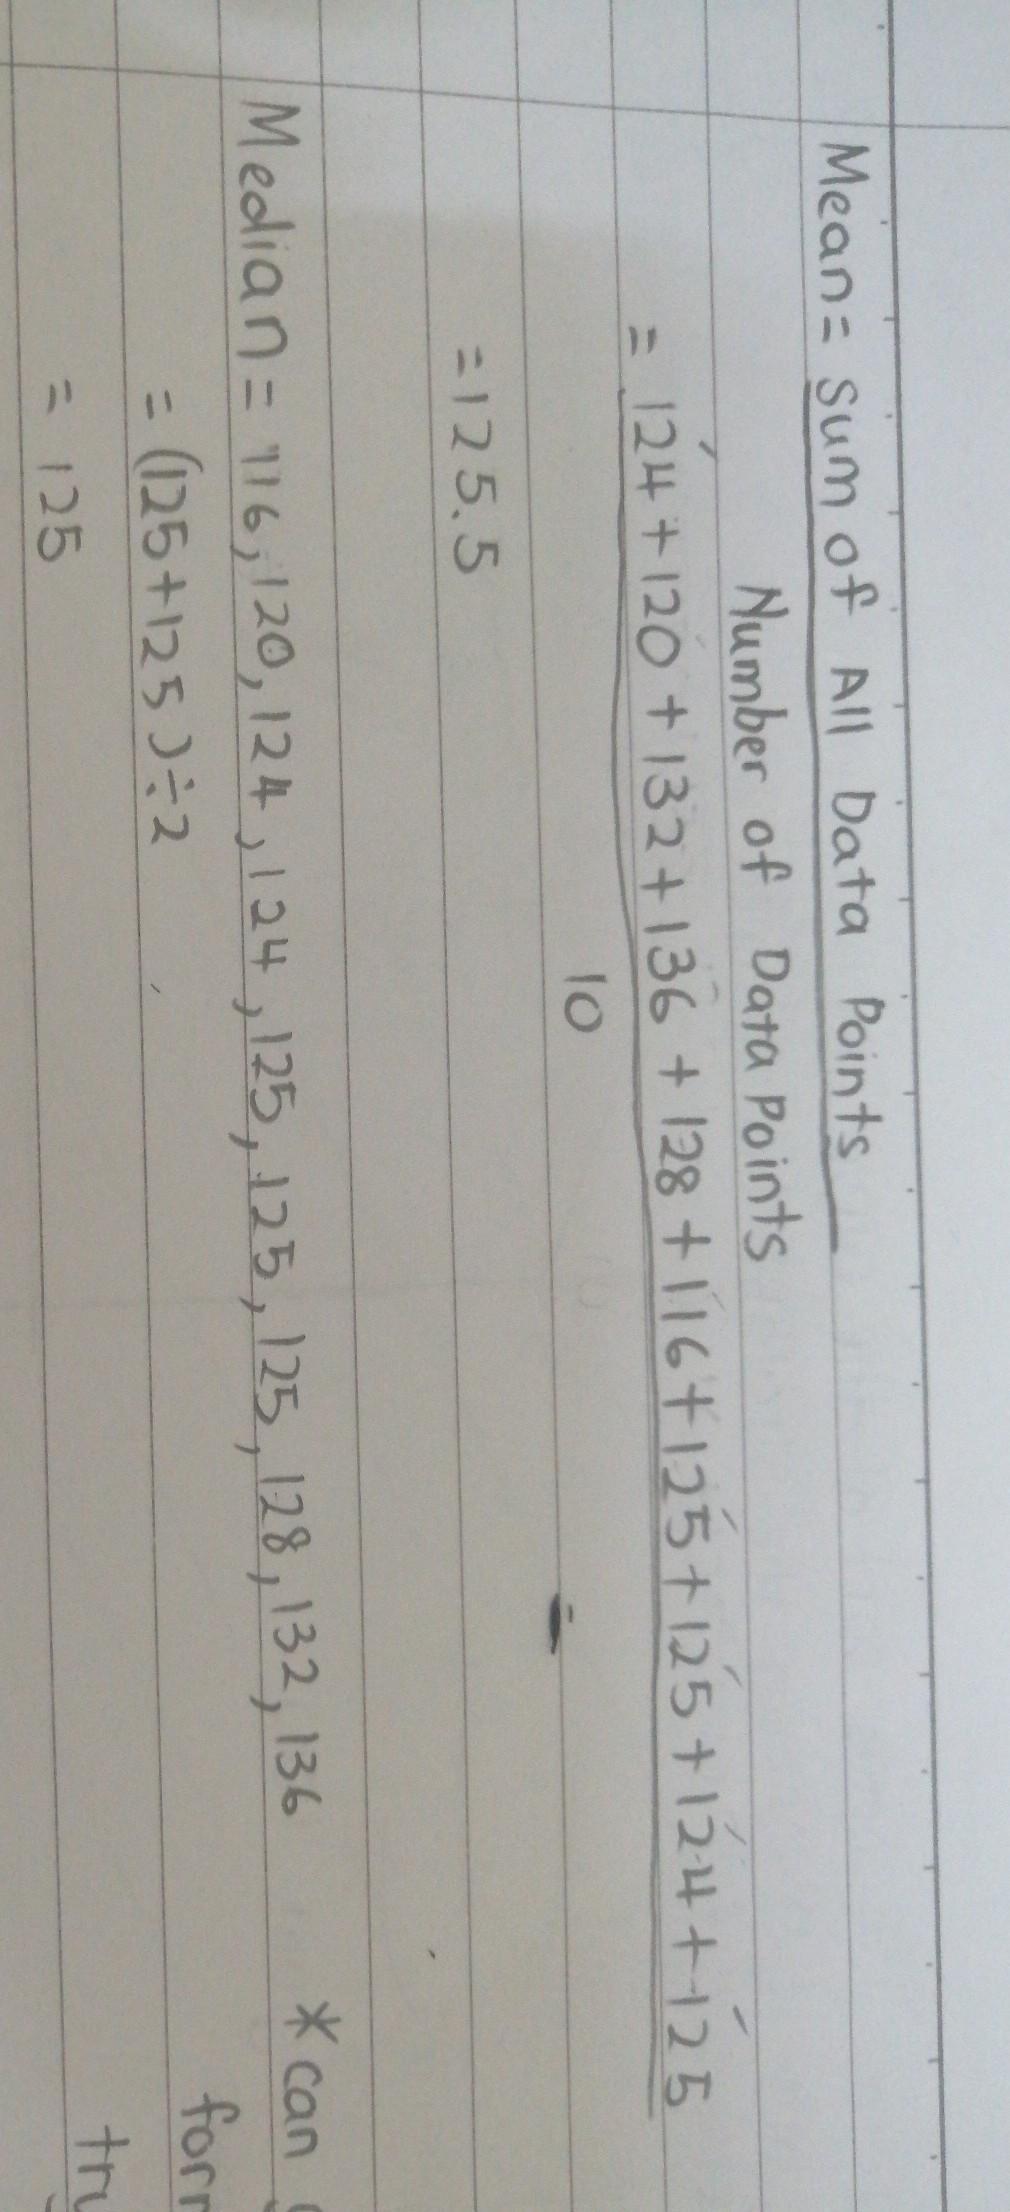 Mean = Sum of All Data Points
Number of Data Points
= 124 + 120 + 132 + 136 + 128 + 116 + 125 + 125 + 124 + 125
10
= 125.5
Median = 116, 120, 124, 124, 125, 125, 125, 128, 132, 136 * can
= (125 + 125) ÷ 2 for
= 125